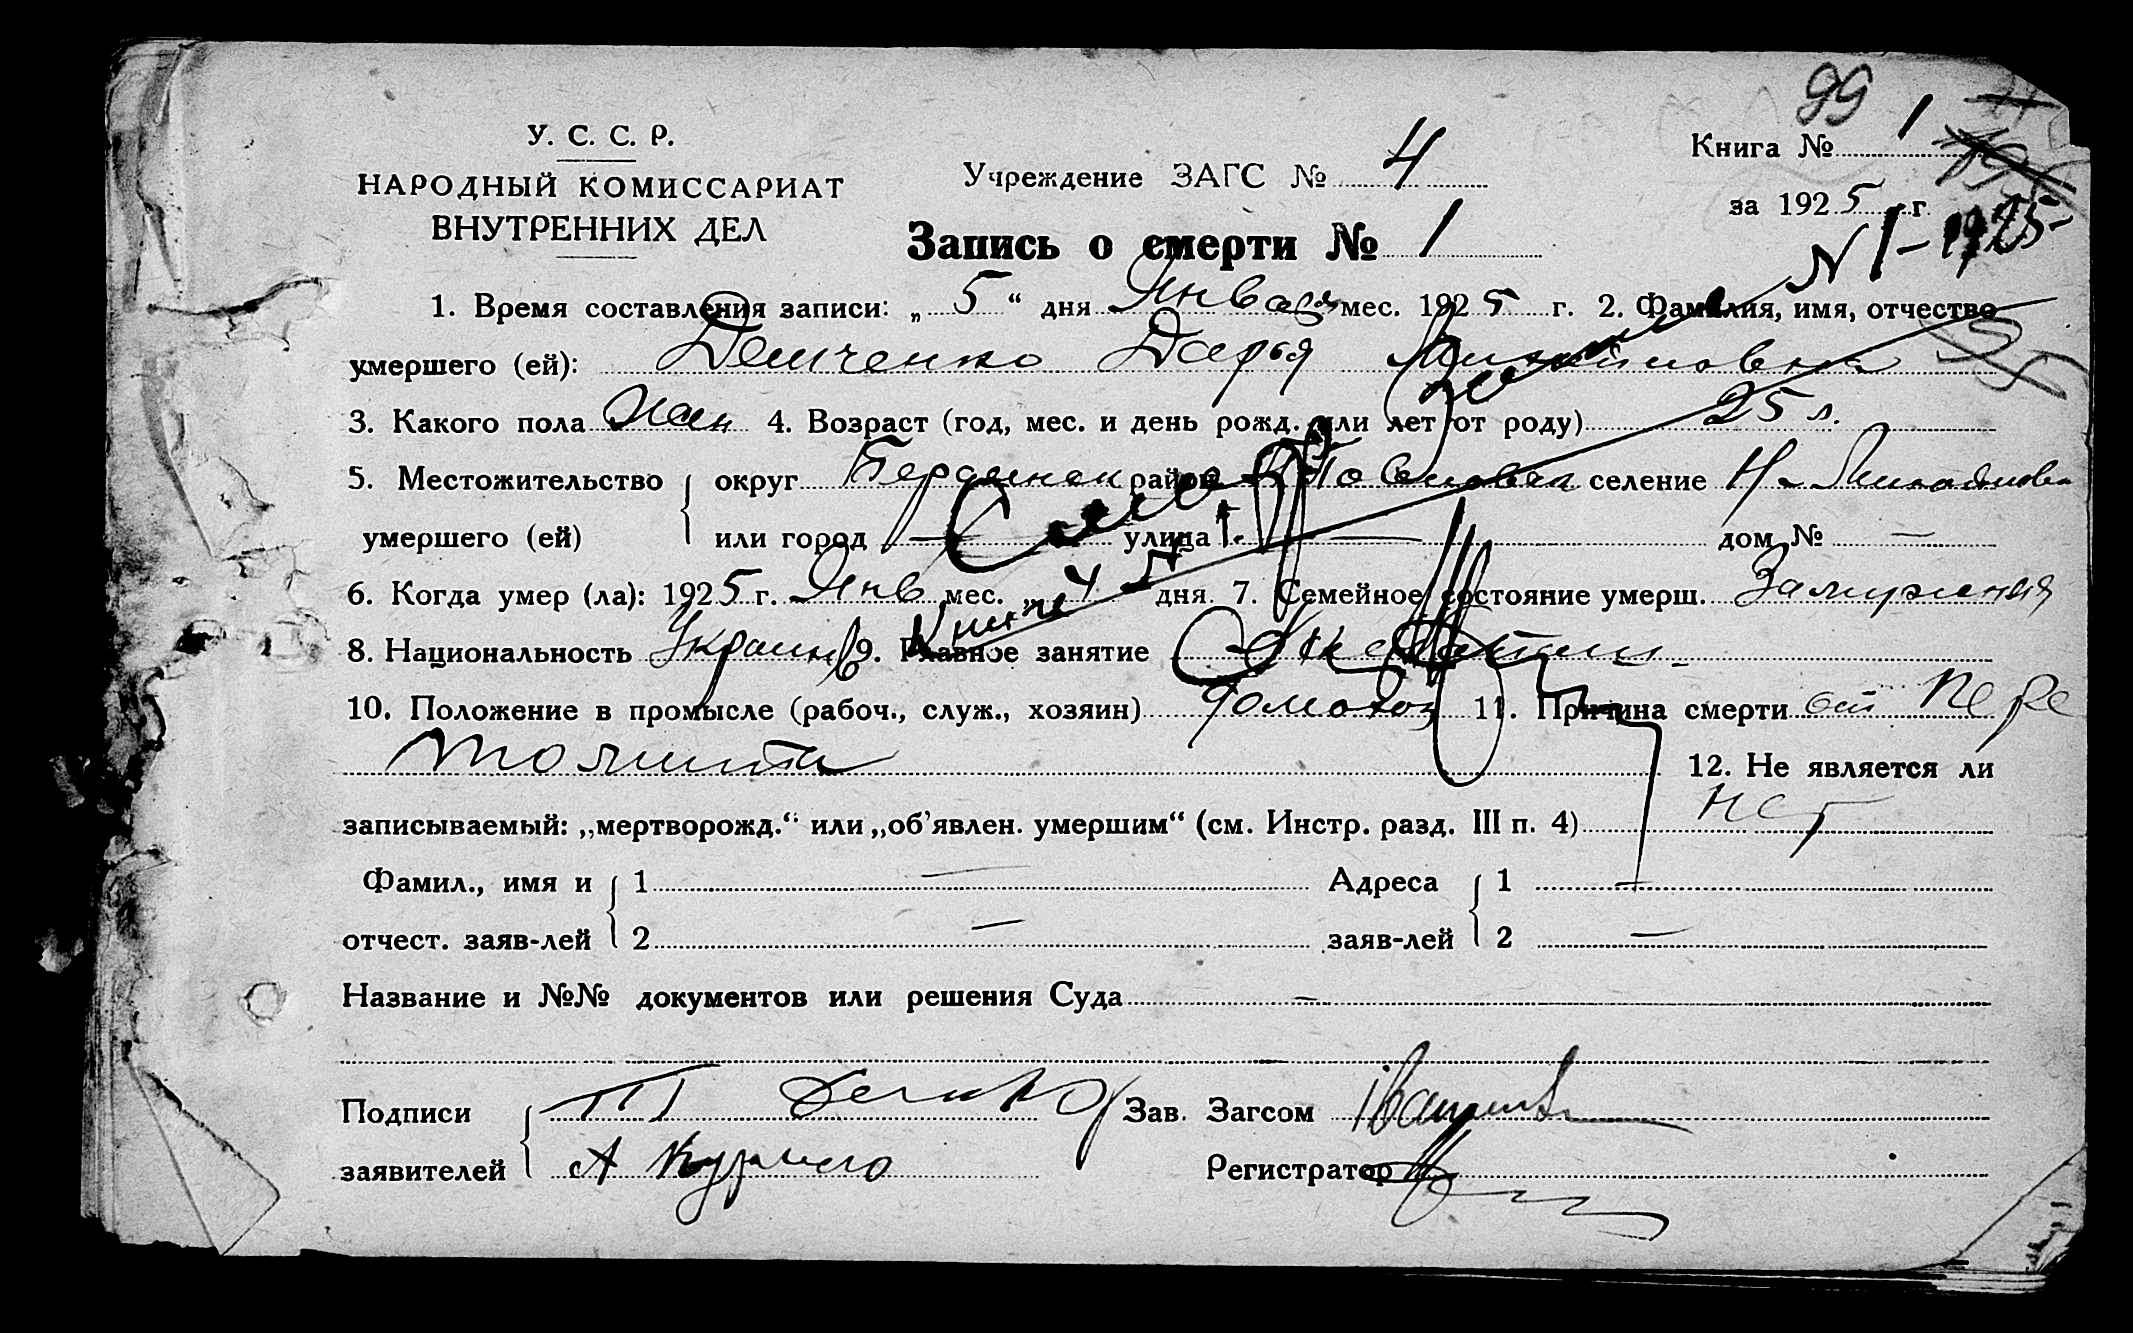 99
У. С. С. Р.
НАРОДНЫЙ КОМИССАРИАТ
ВНУТРЕННИХ ДЕЛ
Учреждение ЗАГС № 4
Книга № 1
за 1925 г.
N 1 - 1925
Запись о смерти № 1
1. Время составления записи: „5“ дня Января мес. 1925 г. 2. Фамилия, имя, отчество
умершего (ей): Демченко Дарья
3. Какого пола Жен 4. Возраст (год, мес. и день рожд. или лет от роду) 25 л.
5. Местожительство округ Бердянск район селение
умершего (ей) или город — улица — дом № —
6. Когда умер (ла): 1925 г. Янв мес. „4 дня. 7. Семейное состояние умерш. Замужняя
8. Национальность Украин 9. Главное занятие
10. Положение в промысле (рабоч., служ., хозяин) домохоз 11. Причина смерти от
12. Не является ли
записываемый: „мертворожд.“ или „об'явлен. умершим“ (см. Инстр. разд. III п. 4) нет
Фамил., имя и 1 — Адреса 1 —
отчест. заяв-лей 2 — заяв-лей 2 —
Название и №№ документов или решения Суда —
Подписи Зав. Загсом
заявителей А Регистратор